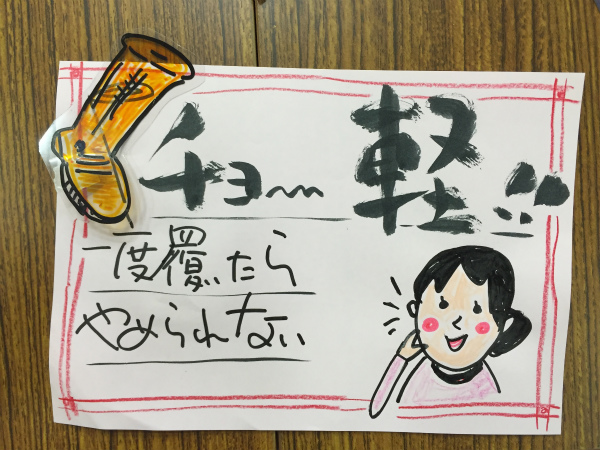 チョ〜軽!!
一度覆いたら
やめられない